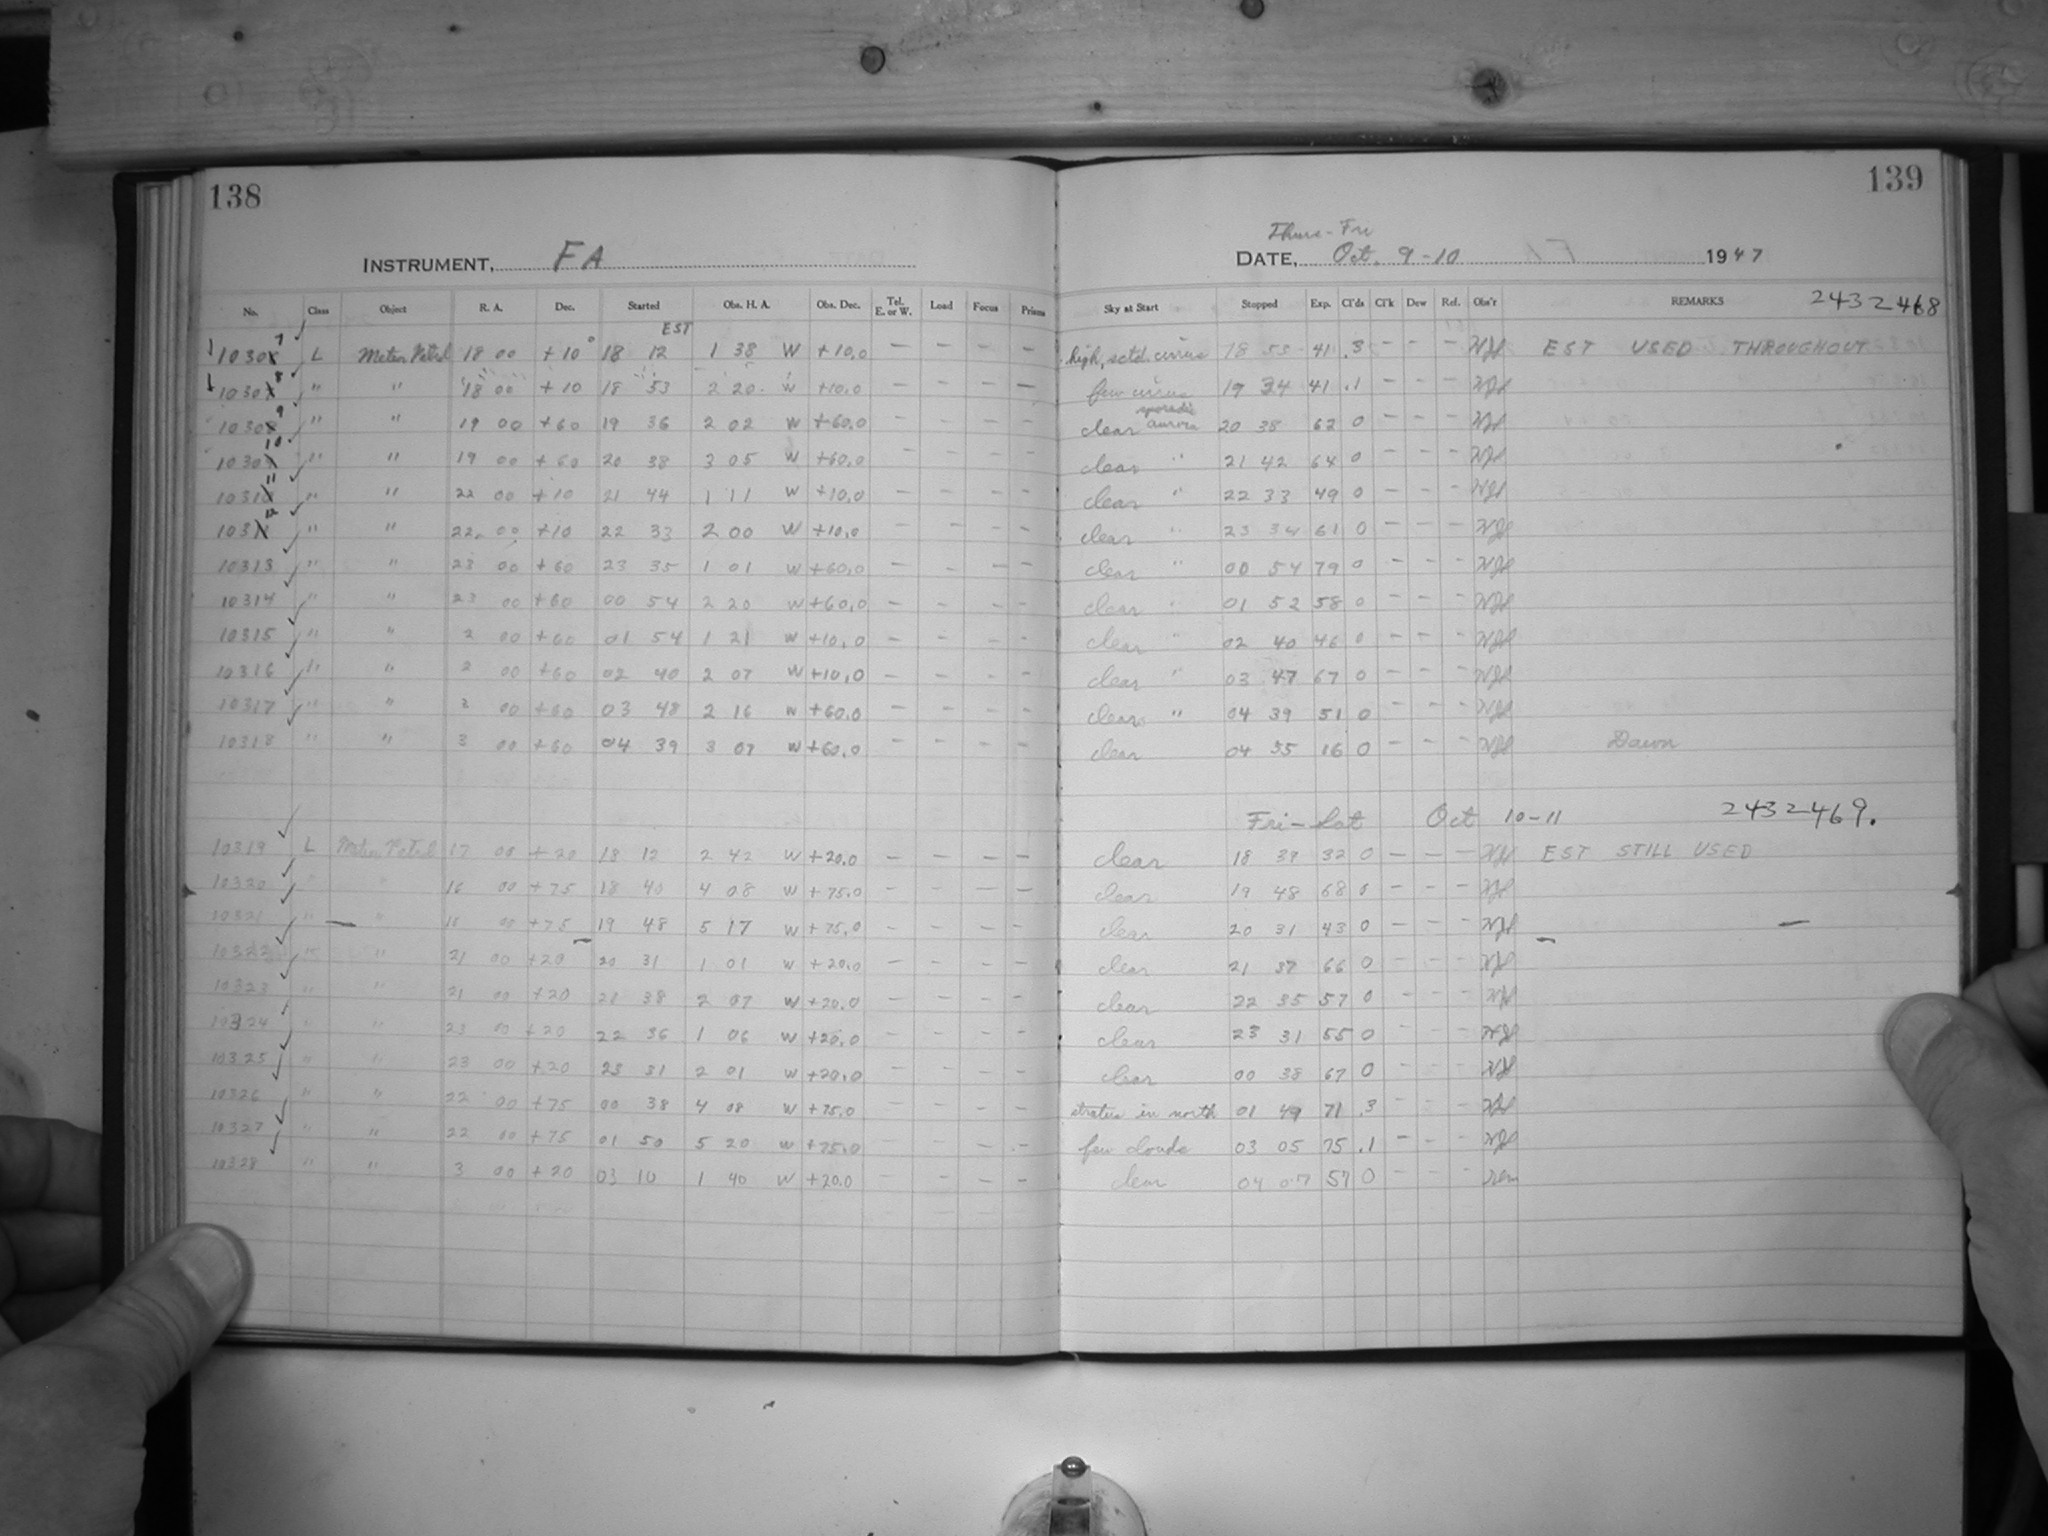 138
139
INSTRUMENT, FA
Thurs - Fri
DATE, Oct. 9-10 1947
No. Class Object R. A. Dec. Started Obs. H. A. Obs. Dec. Tel. E. or W. Load Focus Prisms Sky at Start Stopped Exp. Cl'ds Cl'k Dew Ref. Obs'r REMARKS 2432468
EST
10307 L Meteor Patrol 18 00 +10° 18 12 1 38 W +10.0 — — — — high, sctd. cirrus 18 53 41 .3 — — — EST USED THROUGHOUT
10308 " " 18 00 +10 18 53 2 20 W +10.0 — — — — few cirrus 19 34 41 .1 — — —
10309 " " 19 00 +60 19 36 2 02 W +60.0 — — — — clear sporadic aurora 20 38 62 0 — — —
10310 " " 19 00 +60 20 38 3 05 W +60.0 — — — — clear " 21 42 64 0 — — —
10311 " " 22 00 +10 21 44 1 11 W +10.0 — — — — clear " 22 33 49 0 — — —
10312 " " 22 00 +10 22 33 2 00 W +10.0 — — — — clear " 23 34 61 0 — — —
10313 " " 23 00 +60 23 35 1 01 W +60.0 — — — — clear " 00 54 79 0 — — —
10314 " " 23 00 +60 00 54 2 20 W +60.0 — — — — clear " 01 52 58 0 — — —
10315 " " 2 00 +60 01 54 1 21 W +10.0 — — — — clear " 02 40 46 0 — — —
10316 " " 2 00 +60 02 40 2 07 W +10.0 — — — — clear " 03 47 67 0 — — —
10317 " " 3 00 +60 03 48 2 16 W +60.0 — — — — clear " 04 39 51 0 — — —
10318 " " 3 00 +60 04 39 3 07 W +60.0 — — — — clear 04 55 16 0 — — — Dawn
Fri - Sat Oct 10-11 2432469.
10319 L Meteor Patrol 17 00 +20 18 12 2 42 W +20.0 — — — — clear 18 39 32 0 — — — EST STILL USED
10320 " " 16 00 +75 18 40 4 08 W +75.0 — — — — clear 19 48 68 0 — — —
10321 " " 16 00 +75 19 48 5 17 W +75.0 — — — — clear 20 31 43 0 — — —
10322 " " 21 00 +20 20 31 1 01 W +20.0 — — — — clear 21 37 66 0 — — —
10323 " " 21 00 +20 21 38 2 07 W +20.0 — — — — clear 22 35 57 0 — — —
10324 " " 23 00 +20 22 36 1 06 W +20.0 — — — — clear 23 31 55 0 — —
10325 " " 23 00 +20 23 31 2 01 W +20.0 — — — — clear 00 38 67 0 — —
10326 " " 22 00 +75 00 38 4 08 W +75.0 — — — — stratus in north 01 49 71 .3 — — —
10327 " " 22 00 +75 01 50 5 20 W +75.0 — — — — few clouds 03 05 75 .1 — — —
10328 " " 3 00 +20 03 10 1 40 W +20.0 — — — — clear 04 07 57 0 — — —